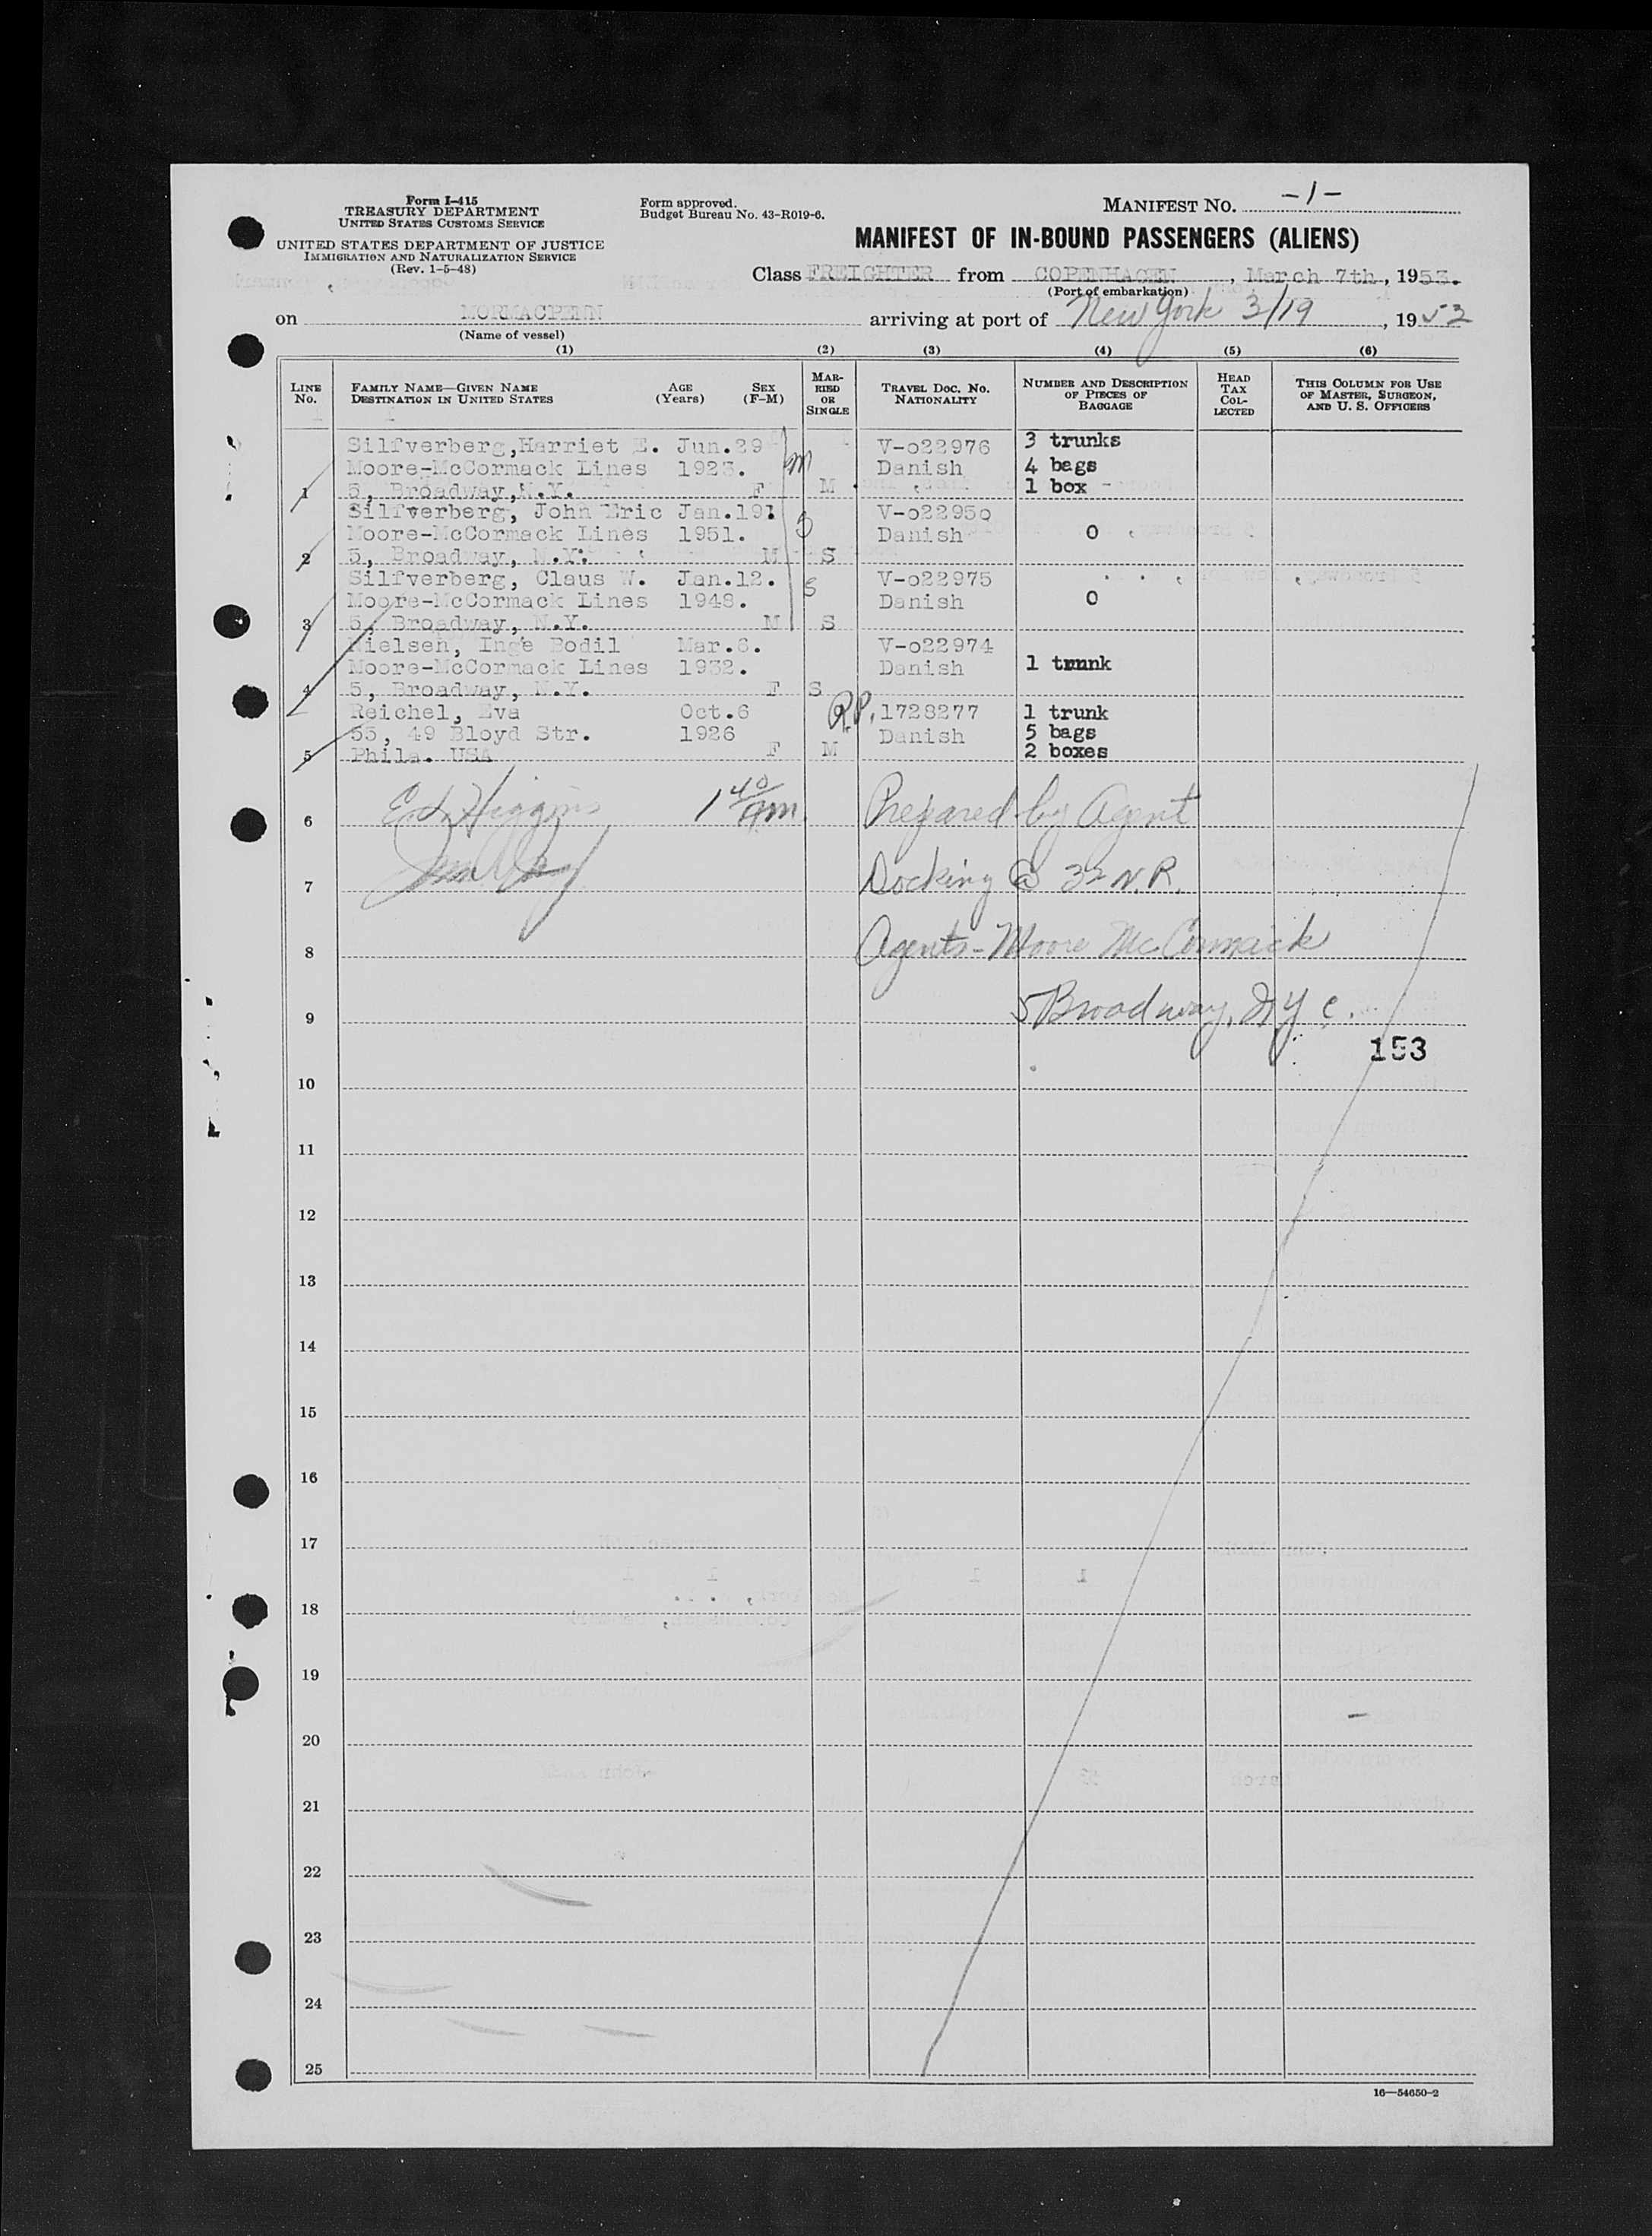 Form I-415
TREASURY DEPARTMENT
UNITED STATES CUSTOMS SERVICE
UNITED STATES DEPARTMENT OF JUSTICE
IMMIGRATION AND NATURALIZATION SERVICE
(Rev. 1-5-48)
Form approved.
Budget Bureau No. 43-R019-6.
MANIFEST NO. -1-
MANIFEST OF IN-BOUND PASSENGERS (ALIENS)
Class FREIGHTER from COPENHAGEN, March 7th, 1953.
(Port of embarkation)
on MORMACPENN arriving at port of New York 3/19, 1953
(Name of vessel)
(1) (2) (3) (4) (5) (6)
LINE NO. FAMILY NAME—GIVEN NAME DESTINATION IN UNITED STATES AGE (Years) SEX (F-M) MARRIED OR SINGLE TRAVEL DOC. NO. NATIONALITY NUMBER AND DESCRIPTION OF PIECES OF BAGGAGE HEAD TAX COLLECTED THIS COLUMN FOR USE OF MASTER, SURGEON, AND U. S. OFFICERS
Silfverberg,Harriet E. Jun.29 V-o22976 3 trunks
Moore-McCormack Lines 1923. m Danish 4 bags
1 5, Broadway,N.Y. F M 1 box
Silfverberg, John Eric Jan.19 V-o22950
Moore-McCormack Lines 1951. S Danish 0
2 5, Broadway, N.Y. M S
Silfverberg, Claus W. Jan.12. V-o22975
Moore-McCormack Lines 1948. S Danish 0
3 5, Broadway, N.Y. M S
Nielsen, Inge Bodil Mar.6. V-o22974
Moore-McCormack Lines 1932. Danish 1 trunk
4 5, Broadway, N.Y. F S
Reichel, Eva Oct.6 R.P. 1728277 1 trunk
55, 49 Bloyd Str. 1926 Danish 5 bags
5 Phila. USA F M 2 boxes
6 Ed. Higgins 1 40 AM Prepared by Agent
7 Docking @ 32 N.R.
8 Agents - Moore McCormack
9 5 Broadway, N Y C.
153
10
11
12
13
14
15
16
17
18
19
20
21
22
23
24
25
16—54650-2